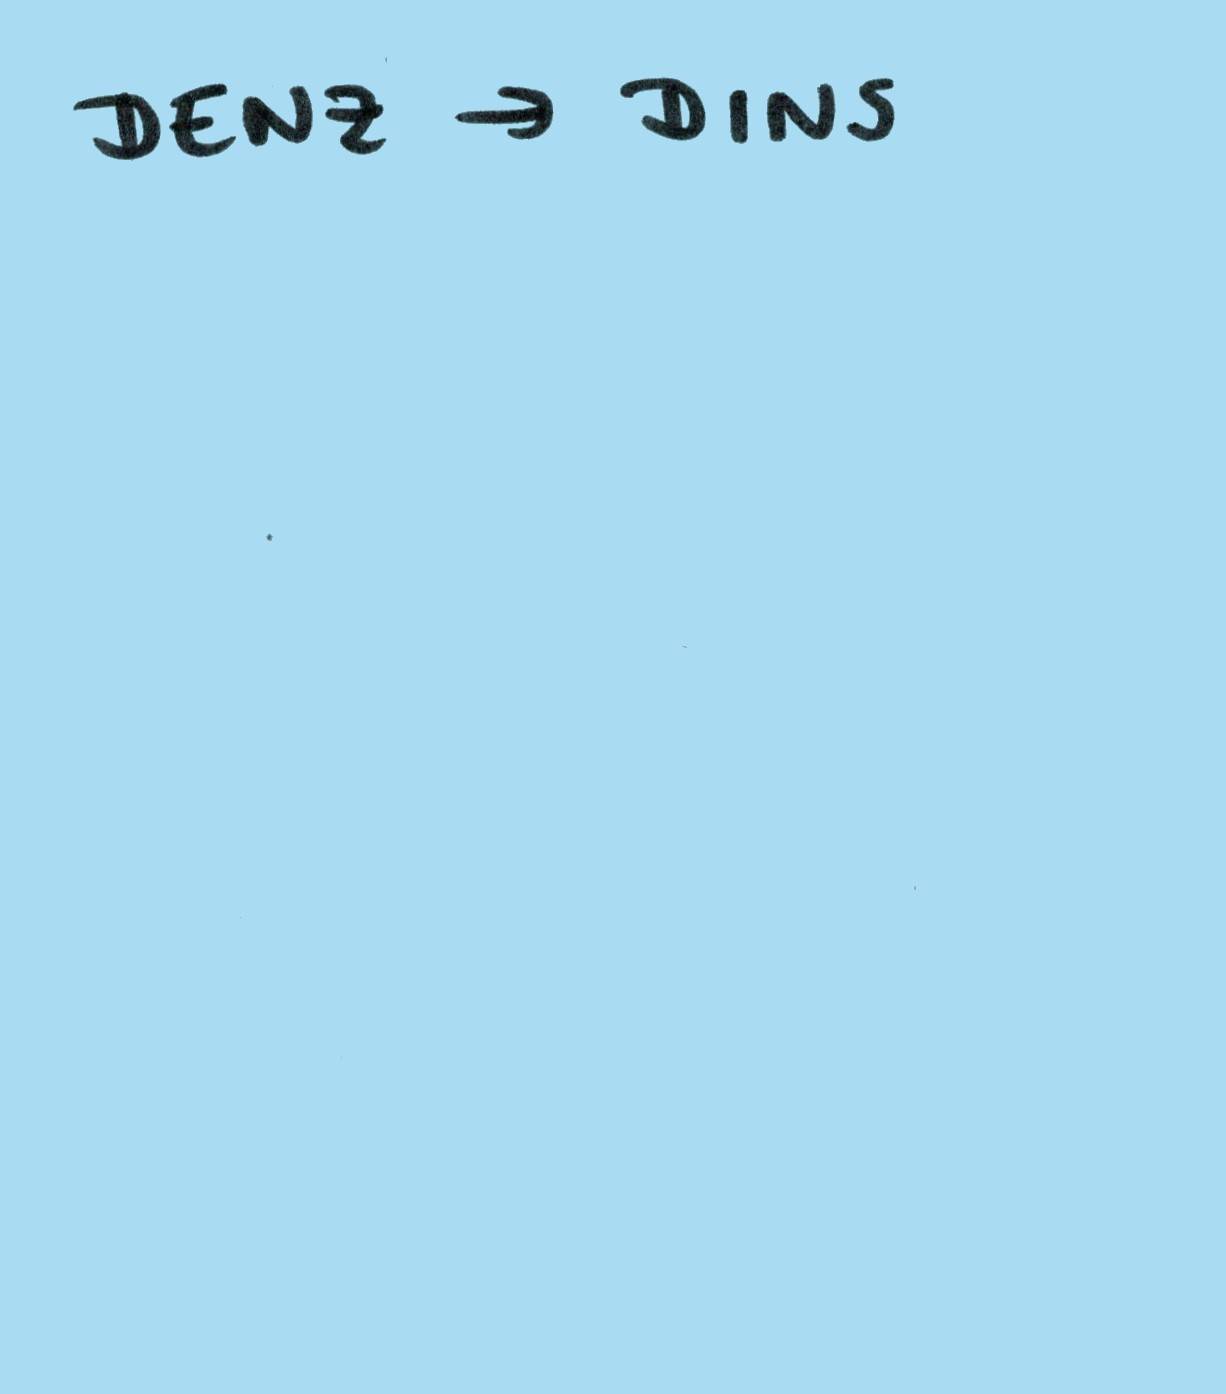 DENZ → DINS